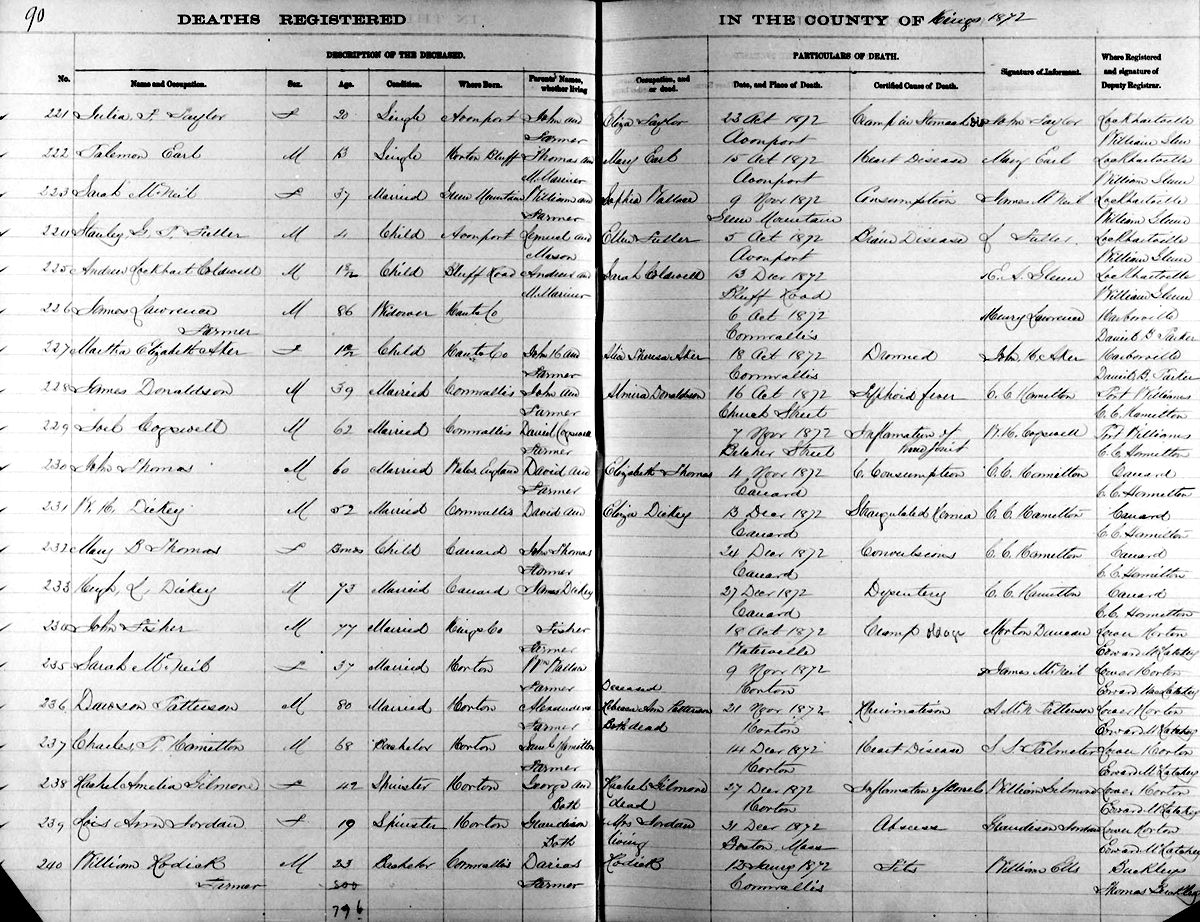 90
DEATHS REGISTERED IN THE COUNTY OF Kings 1872
DESCRIPTION OF THE DECEASED. PARTICULARS OF DEATH.
No. Name and Occupation. Sex. Age. Condition. Where Born. Parents' Names, whether living Occupation, and or dead. Date, and Place of Death. Certified Cause of Death. Signature of Informant. Where Registered and signature of Deputy Registrar.
221 Julia F Taylor F 20 Single Avonport John and Eliza Taylor 23 Oct 1872 Cramp in Stomach John Taylor Lockhartville
Farmer Avonport William Glenn
222 Talemon Earl M 13 Single Horton Bluff Thomas and Mary Earl 15 Oct 1872 Heart Disease Mary Earl Lockhartville
M. Mariner Avonport William Glenn
223 Sarah McNeil F 37 Married Mountain William and Sophia Wallace 9 Nov 1872 Consumption James McNeil Lockhartville
Farmer Mountain William Glenn
224 Stanley G. T Fuller M 4 Child Avonport Lemuel and Ellen Fuller 5 Oct 1872 Brain Disease L Fuller Lockhartville
Mason Avonport William Glenn
225 Andrew Lockhart Coldwell M Child Bluff Road Andrew and Sarah Coldwell 13 Decr 1872 Glenn Lockhartville
M. Mariner Bluff Road William Glenn
226 James Lawrence M 86 Widower Hants Co 6 Oct 1872 Henry Lawrence Harborville
Farmer Cornwallis Daniel B Parker
227 Martha Elizabeth Aker F Child Hants Co John H and Alice Theresa Aker 18 Oct 1872 Drowned John H. Aker Harborville
Farmer Cornwallis Daniel B. Parker
228 James Donaldson M 39 Married Cornwallis John and Almira Donaldson 16 Oct 1872 Typhoid fever C. C. Hamilton Port Williams
Farmer Church Street C. C. Hamilton
229 Joel Cogswell M 62 Married Cornwallis David Cogswell 7 Nov 1872 Inflamation of Knee joint W. H. Cogswell Port Williams
Farmer Belcher Street C. C. Hamilton
230 John Thomas M 60 Married Wales England David and Elizabeth Thomas 4 Nov 1872 C. Consumption C. C. Hamilton Canard
Farmer Canard C. C. Hamilton
231 W. H. Dickey M 52 Married Cornwallis David and Eliza Dickey 13 Decr 1872 Strangulated Hernia C. C. Hamilton Canard
Canard C. C. Hamilton
232 Mary B Thomas F Child Canard John Thomas 24 Decr 1872 Convulsions C. C. Hamilton Canard
Farmer Canard C. C. Hamilton
233 Hugh L. Dickey M 73 Married Canard James Dickey 27 Decr 1872 Dysentery C. C. Hamilton Canard
Canard C. C. Hamilton
234 John Fisher M 77 Married Kings Co Fisher 18 Oct 1872 Cramp old age Morton Duncan Lower Horton
Farmer Waterville Edward McLatchy
235 Sarah McNeil F 37 Married Horton Wm Wallace 9 Nov 1872 James McNeil Lower Horton
Farmer Deceased Horton Edward McLatchy
236 Dawson Patterson M 80 Married Horton Alexander and Rebecca Ann Patterson 21 Nov 1872 Rheumatism Patterson Lower Horton
Farmer Both dead Horton Edward McLatchy
237 Charles T. Hamilton M 68 Bachelor Horton Hamilton 14 Decr 1872 Heart Disease Palmeter Lower Horton
Farmer Horton Edward McLatchy
238 Rachel Amelia Gilmore F 42 Spinster Horton George and Rachel Gilmore 27 Decr 1872 Inflamation of Bowels William Gilmore Lower Horton
Both dead Horton Edward McLatchy
239 Lois Ann Jordan F 19 Spinster Horton Grandison Mrs Jordan 31 Decr 1872 Abscess Grandison Jordan Lower Horton
Both living Boston Mass Edward McLatchy
240 William M 23 Bachelor Cornwallis 1872 Fits William Buckleys
Farmer Farmer Cornwallis Thomas
796